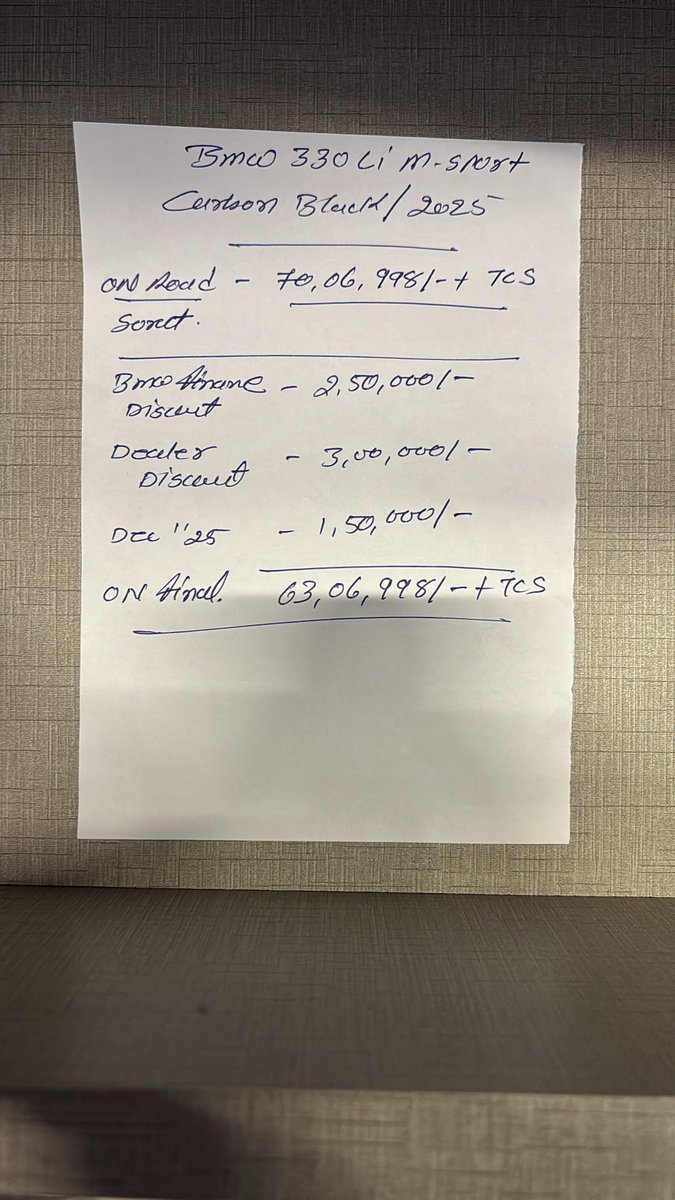 BMW 330Li M-Sport
Carbon Black/2025
ON Road - 70,06,998/- + TCS
BMW Finance - 2,50,000/-
Discount
Dealer - 3,00,000/-
Discount
Dec "25 - 1,50,000/-
ON final. 63,06,998/- + TCS